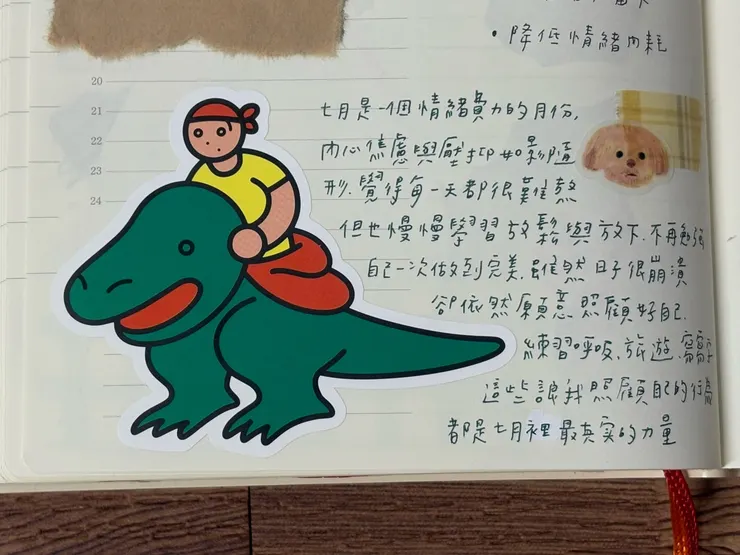 • 降低情緒內耗
20
21
22
23
24
七月是一個情緒費力的月份,
內心焦慮與壓抑如影隨
形.覺得每一天都很難熬
但也慢慢學習放鬆與放下.不再勉強
自己一次做到完美.雖然日子很崩潰
卻依然願意照顧好自己.
練習呼吸、旅遊、寫字
這些讓我照顧自己的行為
都是七月裡最真實的力量